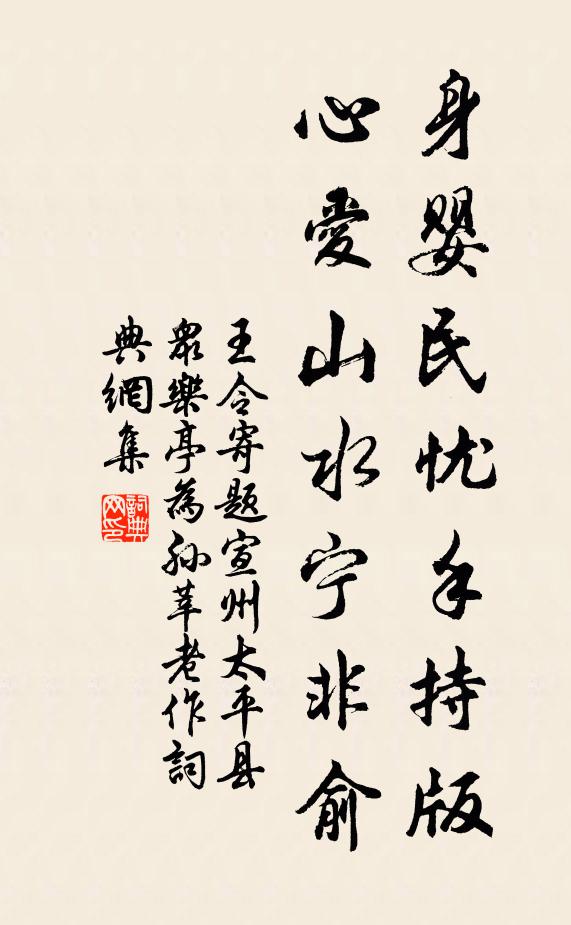 身婴民忧手持版
心愛山水宁非俞
王令寄题宣州太平县
衆樂亭為孙莘老作詞
典網集
詞典网印